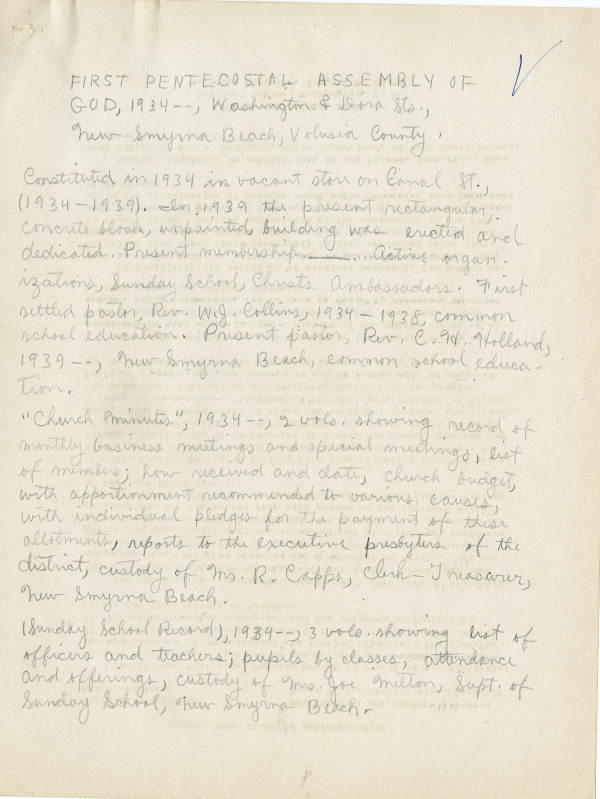 FIRST PENTECOSTAL ASSEMBLY OF
GOD, 1934--, Washington & Dora Sts.,
New Smyrna Beach, Volusia County.
Constituted in 1934 in vacant store on Canal St.,
(1934-1939). In 1939 the present rectangular,
concrete block, unpainted, building was erected and
dedicated. Present membership. Active organ-
izations, Sunday School, Christs Ambassadors. First
settled pastor, Rev. W.J. Collins, 1934-1938, common
school education. Present pastor, Rev. C. H. Holland,
1939--, New Smyrna Beach, common school educa-
tion.
"Church Minutes", 1934--, 2 vols. showing record of
monthly business meetings and special meetings, list
of members; how received and date, church budget,
with apportionment recommended to various causes,
with individual pledges for the payment of these
allotments, reports to the executive presbyters of the
district, custody of Mrs. R. Capps, Clerk-Treasurer,
New Smyrna Beach.
(Sunday School Record), 1934--, 3 vols. showing list of
officers and teachers; pupils by classes, attendance
and offerings, custody of Mrs. Joe Milton, Supt. of
Sunday School, New Smyrna Beach.